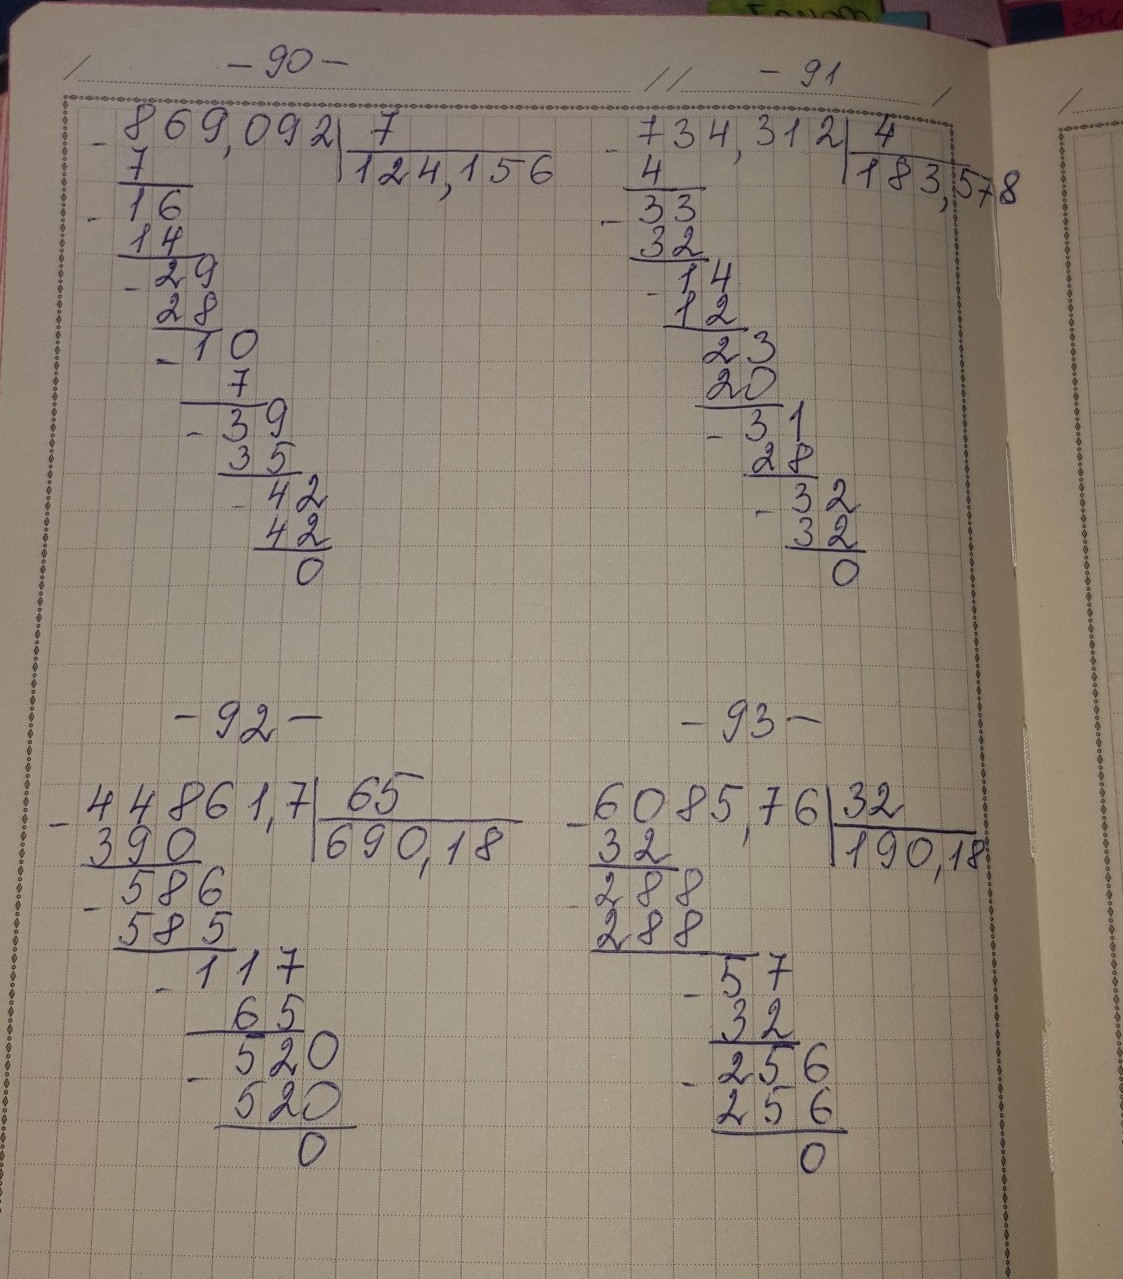 - 90 -
869,092 7
- 7 124,156
16
- 14
29
- 28
10
- 7
39
- 35
42
- 42
0
- 91
734,312 4
- 4 183,578
33
- 32
14
- 12
23
20
31
- 28
32
- 32
0
- 92 -
44861,7 65
- 390 690,18
586
- 585
117
- 65
520
- 520
0
- 93 -
6085,76 32
- 32 190,18
288
- 288
57
- 32
256
- 256
0